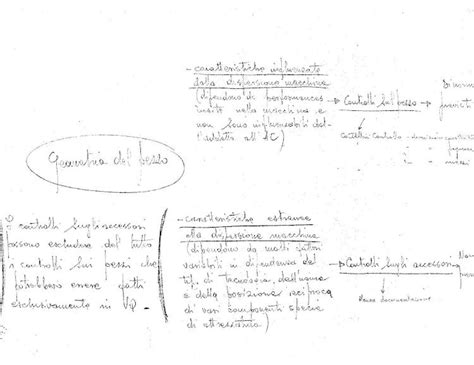 - caratteristiche influenzate
dalla dispersione macchina
(dipendono da performances
insite nella macchina e
non sono influenzabili dal-
l'addetto all'IC)
Controlli sul pezzo
Cartellini controllo
Geometria del pezzo
i controlli sugli accessori
possono escludere del tutto
i controlli sui pezzi che
potrebbero essere fatti
esclusivamente in
- caratteristiche estranee
alla dispersione macchina
(dipendono da molti fattori
variabili in dipendenza del
tipo di tecnologia, dell'usura
e della posizione reciproca
di vari componenti specie
di attrezzatura)
Controlli sugli accessori
documentazione